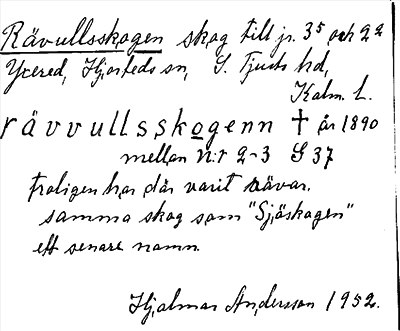 Rävullsskogen skog till jr. 3⁵ och 2²
Yxered, Hjorteds sn, S. Tjusts hd,
Kalm. L.
rävvullsskogenn † år 1890
mellan N:r 2-3 S 37
troligen har där varit rävar.
samma skog som "Sjöskogen"
ett senare namn.
Hjalmar Andersson 1952.